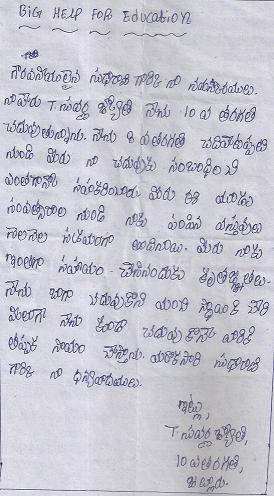 BIG HELP FOR EDUCATION
గౌరవనీయులైన సుధారాణి గారికి నా నమస్కారములు.
నా పేరు T. సువర్ణ జ్యోతి నేను 10 వ తరగతి
చదువుతున్నాను. నేను 8 వ తరగతి చదివేటప్పటి
నుండి మీరు నా చదువుకు సంబంధించి
ఎంతగానో సహకరించారు. మీరు ఈ మూడు
సంవత్సరాల నుండి నాకు వస్తువులు
నెలనెల సక్రమంగా అందినాయి. మీరు నాకు
ఇంతగా సహాయం చేసినందుకు కృతజ్ఞతలు.
నేను బాగా చదువుకొని మంచి స్థాయికి చేరి
మీలాగా నేను కూడా చదువుకొనే వారికి
తప్పక సాయం చేస్తాను. మరొకసారి సుధారాణి
గారికి నా ధన్యవాదములు.
ఇట్లు,
T. సువర్ణ జ్యోతి,
10 వ తరగతి,